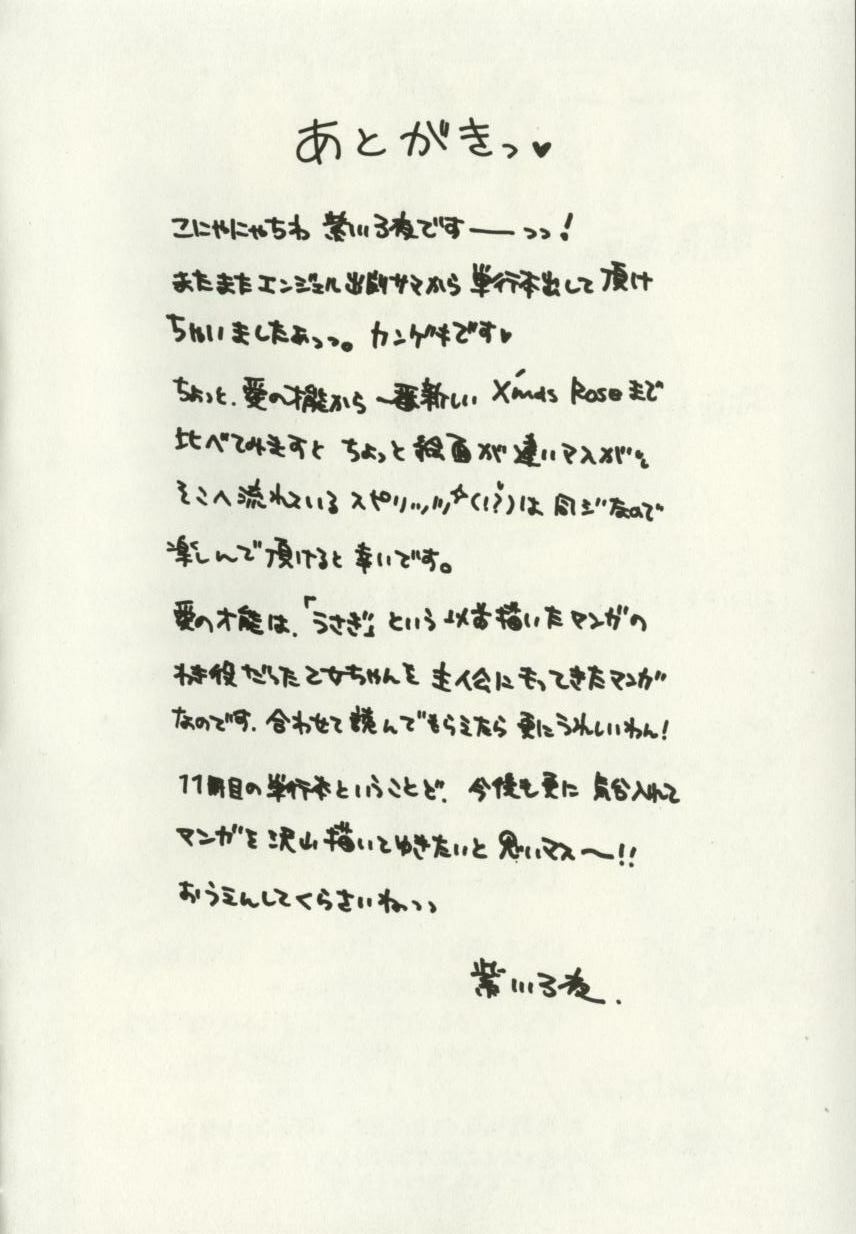 あとがきっ♥
こにゃにゃちわ 紫いろ夜ですーーっっ!
またまたエンジェル出版サマから 単行本出して頂け
ちゃいましたぁっっ。カンゲキです♥
ちょっと、愛の才能から 一番新しい X'mas Roseまで
比べてみますと ちょっと絵面が違いマスが
そこへ流れている スピリッッツ☆(!?)は 同ジなので
楽しんで頂けると幸いです。
愛の才能は、「うさぎ」という以前描いたマンガの
わき役だった乙女ちゃんを 主人公にもってきたマンガ
なのです。合わせて読んでもらえたら 更にうれしいわん!
11冊目の単行本ということで、今後も更に 気合入れて
マンガを沢山描いてゆきたいと 思いマス〜!!
おうえんしてくらさいねっっ
紫いろ夜.